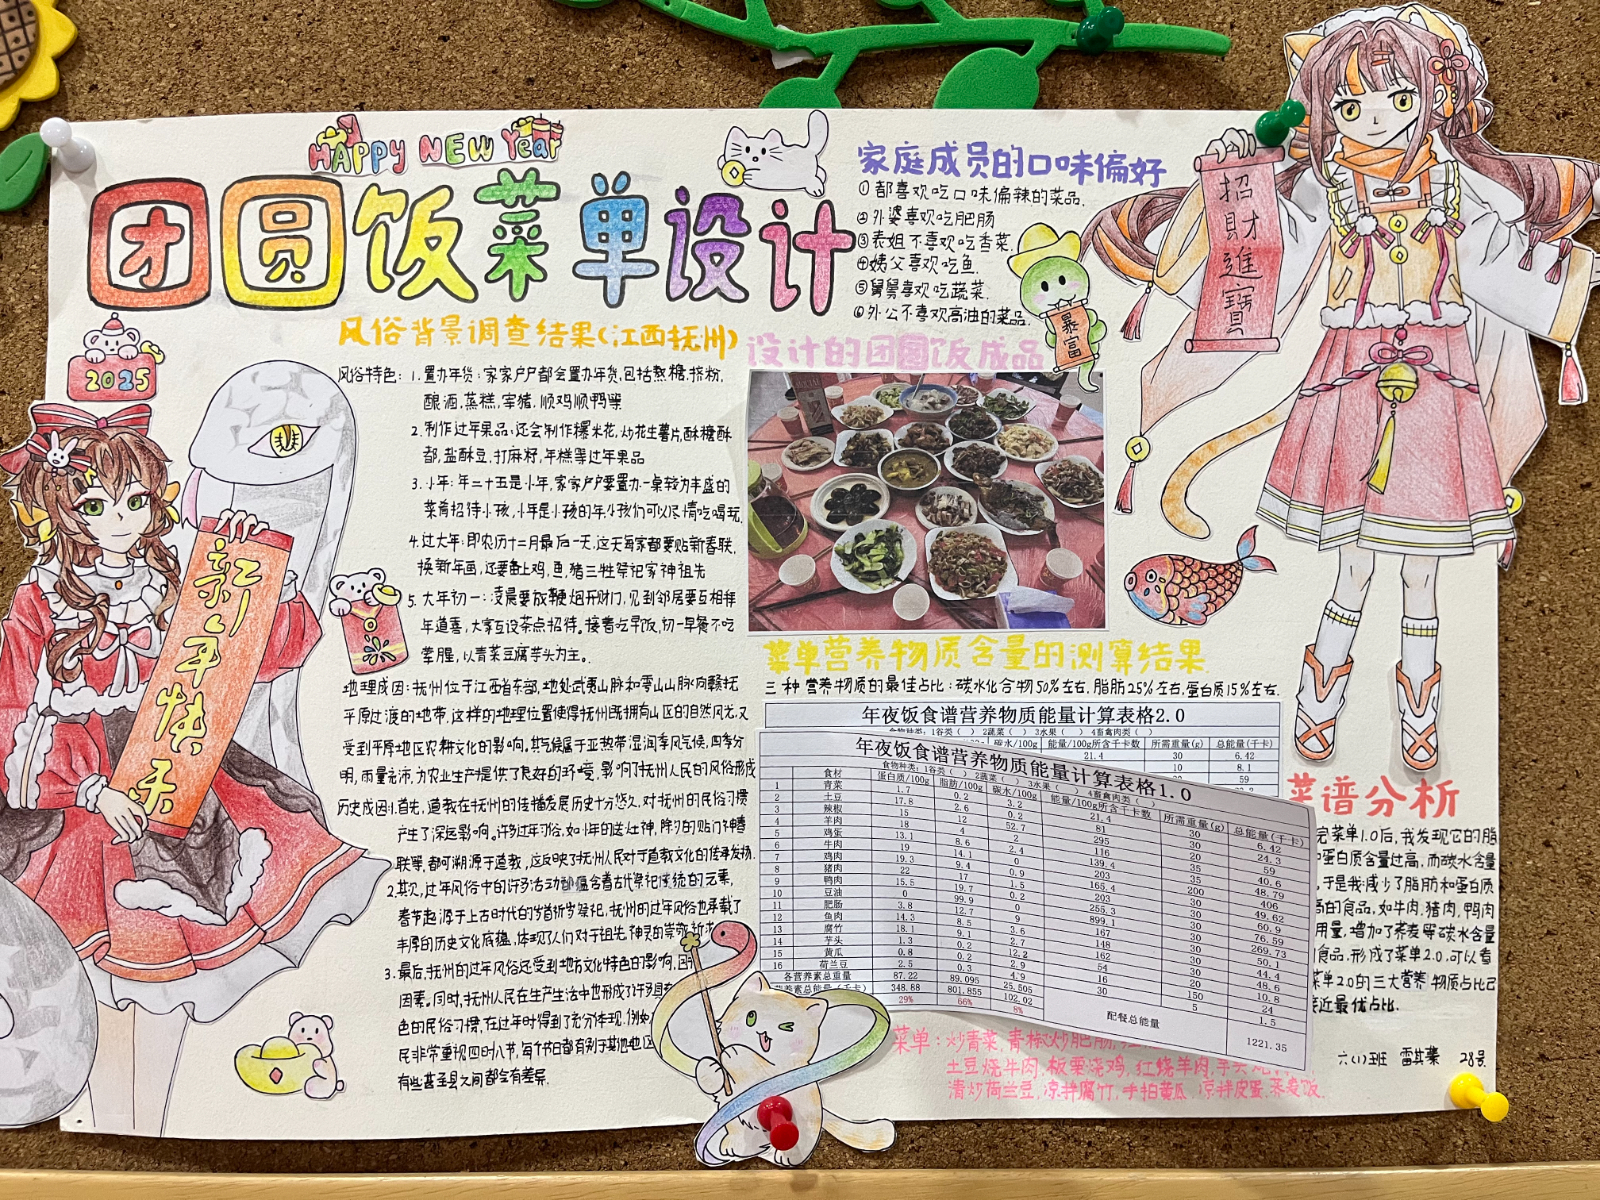 HAPPY NEW Year
团圆饭菜单设计
2025
新年快乐
家庭成员的口味偏好
①都喜欢吃口味偏辣的菜品.
②外婆喜欢吃肥肠
③表姐不喜欢吃香菜.
④姨父喜欢吃鱼.
⑤舅舅喜欢吃蔬菜.
⑥外公不喜欢高油的菜品.
暴富
招財進寶
风俗背景调查结果(江西抚州)
风俗特色: 1.置办年货:家家户户都会置办年货,包括熬糖.捞粉,
酿酒.蒸糕.宰猪.顺鸡顺鸭等
2.制作过年果品:还会制作爆米花,炒花生薯片,酥糖酥
都,盐酥豆,打麻籽,年糕等过年果品
3.小年:年二十五是小年,家家户户要置办一桌较为丰盛的
菜肴招待小孩,小年是小孩的年,小孩们可以尽情吃喝玩.
4.过大年:即农历十二月最后一天,这天每家都要贴新春联,
换新年画,还要备上鸡,鱼,猪三牲祭祀家神祖先
5.大年初一:凌晨要放鞭炮开财门,见到邻居要互相拜
年道喜,大家互设茶点招待。接着吃早饭,初一早餐不吃
荤腥,以青菜豆腐芋头为主。
地理成因:抚州位于江西省东部,地处武夷山脉和雩山山脉向赣抚
平原过渡的地带,这样的地理位置使得抚州既拥有山区的自然风光,又
受到平原地区农耕文化的影响。其气候属于亚热带湿润季风气候,四季分
明,雨量充沛,为农业生产提供了良好的环境,影响了抚州人民的风俗形成
历史成因:1.首先,道教在抚州的传播发展历史十分悠久,对抚州的民俗习惯
产生了深远影响。许多过年习俗,如小年的送灶神,除夕的贴门神春
联等,都可溯源于道教,这反映了抚州人民对于道教文化的传承发扬.
2.其次,过年风俗中的许多活动都蕴含着古代祭祀成统的元素,
春节起源于上古时代的岁首祈岁祭祀,抚州的过年风俗也承载了
丰厚的历史文化底蕴,体现了人们对于祖先神灵的崇敬
3.最后,抚州的过年风俗还受到地方文化特色的影响,
因素。同时,抚州人民在生产生活中也形成了许多具有
色的民俗习惯,在过年时得到了充分体现.例如
民非常重视四时八节,每个节日都有别于其他地区
有些甚至县之间都会有差异.
设计的团圆饭成品
菜单营养物质含量的测算结果
三种营养物质的最佳占比:碳水化合物50%左右,脂肪25%左右,蛋白质15%左右.
年夜饭食谱营养物质能量计算表格2.0
食物种类:1谷类( ) 2蔬菜( ) 3水果( ) 4畜禽肉类( )
碳水/100g 能量/100g所含千卡数 所需重量(g) 总能量(千卡)
21.4 30 6.42
10 8.1
20 59
年夜饭食谱营养物质能量计算表格1.0
食物种类:1谷类( ) 2蔬菜( ) 3水果( ) 4畜禽肉类( )
食材 蛋白质/100g 脂肪/100g 碳水/100g 能量/100g所含千卡数 所需重量(g) 总能量(千卡)
1 青菜 1.7 0.2 3.2 21.4 30 6.42
2 土豆 17.8 2.6 0.2 81 30 24.3
3 辣椒 15 12 52.7 295 20 59
4 羊肉 18 4 0 116 35 40.6
5 鸡蛋 13.1 8.6 2.4 139.4 35 48.79
6 牛肉 19 2 0 203 200 406
7 鸡肉 19.3 14.1 0.9 165.4 30 49.62
8 猪肉 22 9.4 1.5 203 30 60.9
9 鸭肉 15.5 17 0.2 255.3 30 76.59
10 豆油 0 19.7 0 899.1 30 269.73
11 肥肠 3.8 99.9 0 167 30 50.1
12 鱼肉 14.3 12.7 9 148 30 44.4
13 腐竹 18.1 8.5 3.6 162 30 48.6
14 芋头 1.3 9.1 2.7 54 20 10.8
15 黄瓜 0.8 0.2 12.2 16 150 24
16 荷兰豆 2.5 0.2 2.9 30 5 1.5
各营养素总重量 87.22 89.095 25.505
营养素总能量(千卡) 348.88 801.855 102.02 配餐总能量 1221.35
29% 66% 8%
菜谱分析
完菜单1.0后,我发现它的脂
蛋白质含量过高,而碳水含量
,于是我减少了脂肪和蛋白质
高的食品,如牛肉.猪肉,鸭肉
用量,增加了荞麦等碳水含量
食品.形成了菜单2.0.可以看
菜单2.0的三大营养物质占比已
接近最优占比.
菜单:炒青菜,青椒炒肥肠,
土豆烧牛肉,板栗烧鸡,红烧羊肉,芋头
清炒荷兰豆,凉拌腐竹,手拍黄瓜,凉拌皮蛋,荞麦饭.
六(1)班 雷其蓁 28号